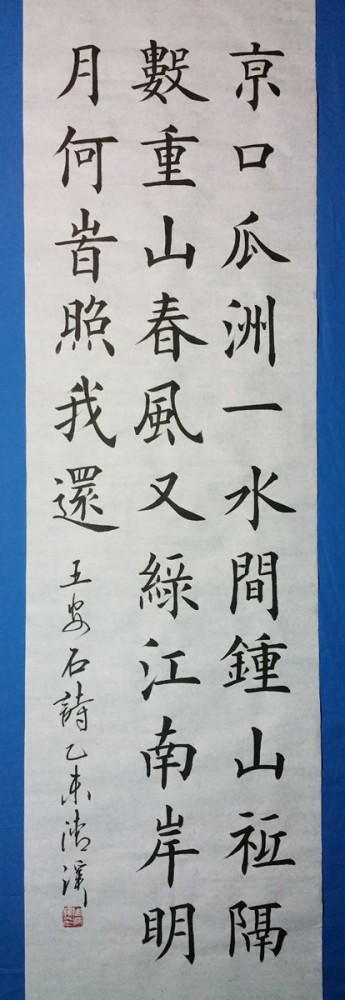 亰口瓜洲一水間鍾山祗隔
數重山春風又綠江南岸明
月何旹照我還
王安石詩乙未